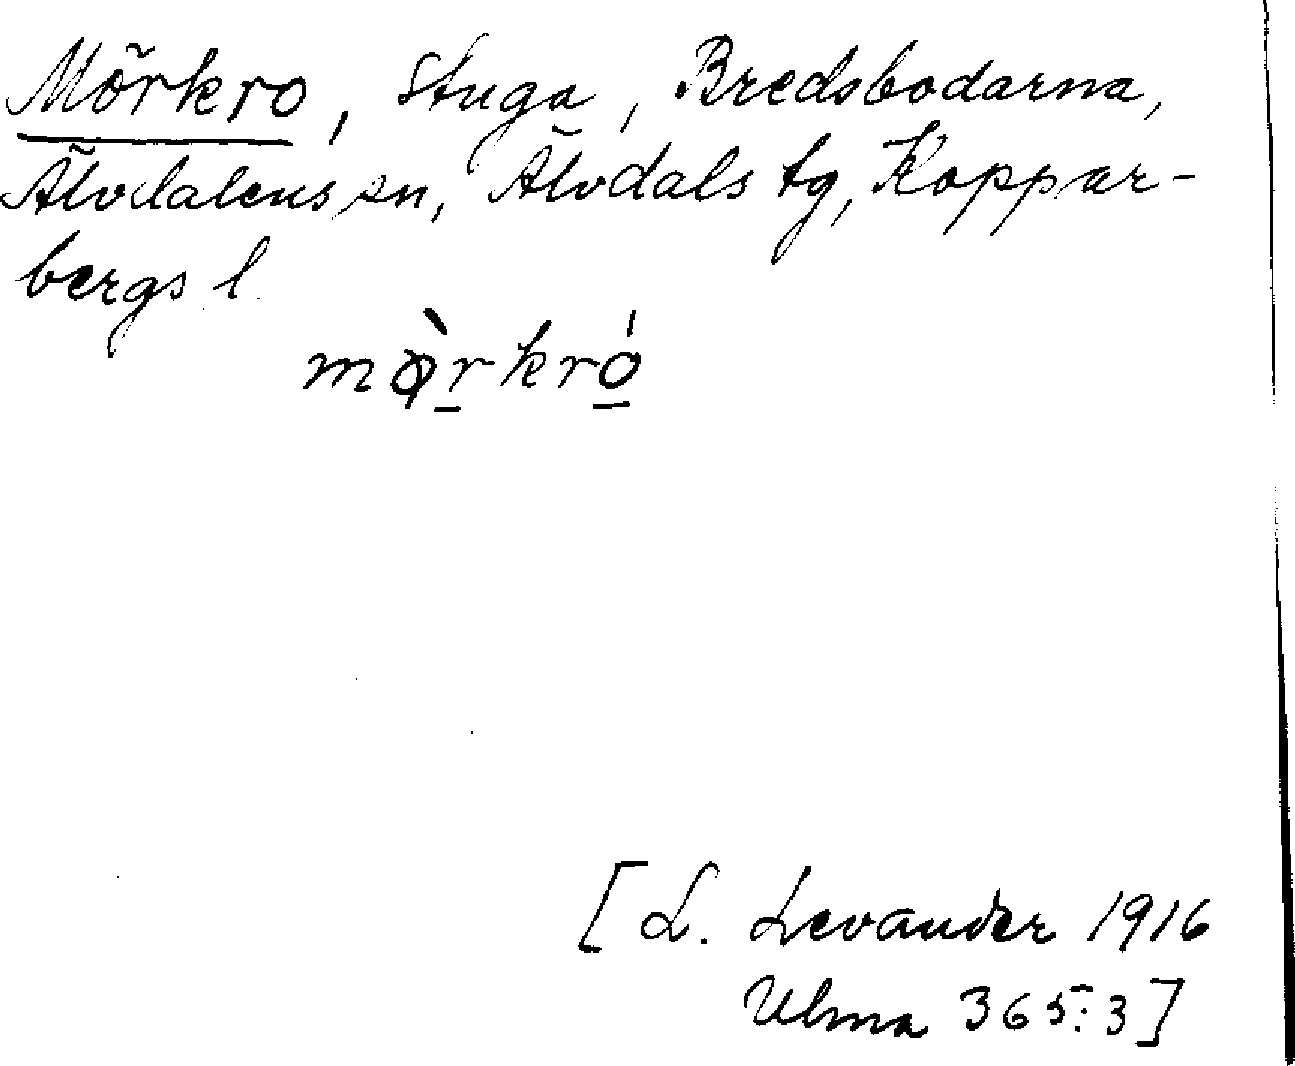 Mörkro, Stuga, Bredsbodarna,
Älvdalens sn, Älvdals tg, Koppar-
bergs l.
mǫ̀r̲kró̲
[L. Levander 1916
Ulma 365:3]